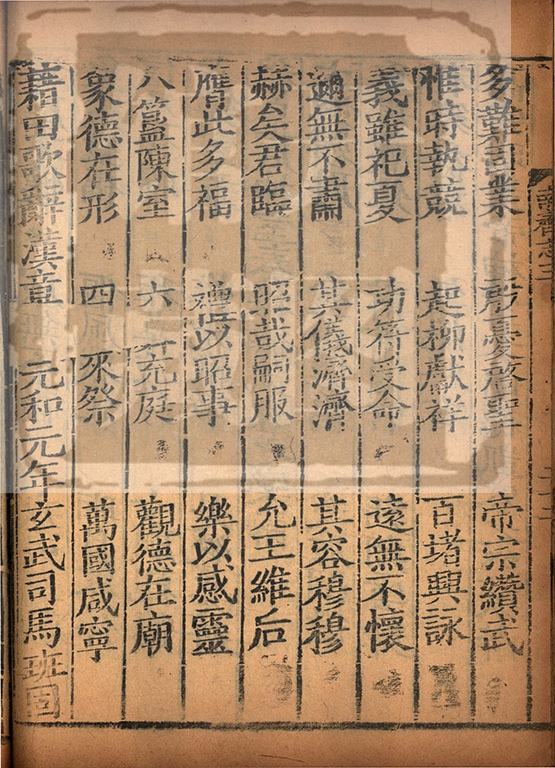 南齊志三
多難固業 殷憂啓聖 帝宗纘武
惟時執競 起柳獻祥 百堵興詠
義雖祀夏 功符受命 遠無不懷
邇無不肅 其儀濟濟 其容穆穆
赫矣君臨 昭哉嗣服 允王維后
膺此多福 禮以昭事 樂以感靈
八簋陳室 六 充庭 觀德在廟
象德在形 四 來祭 萬國咸寧
藉田歌辭漢章 元和元年玄武司馬班固